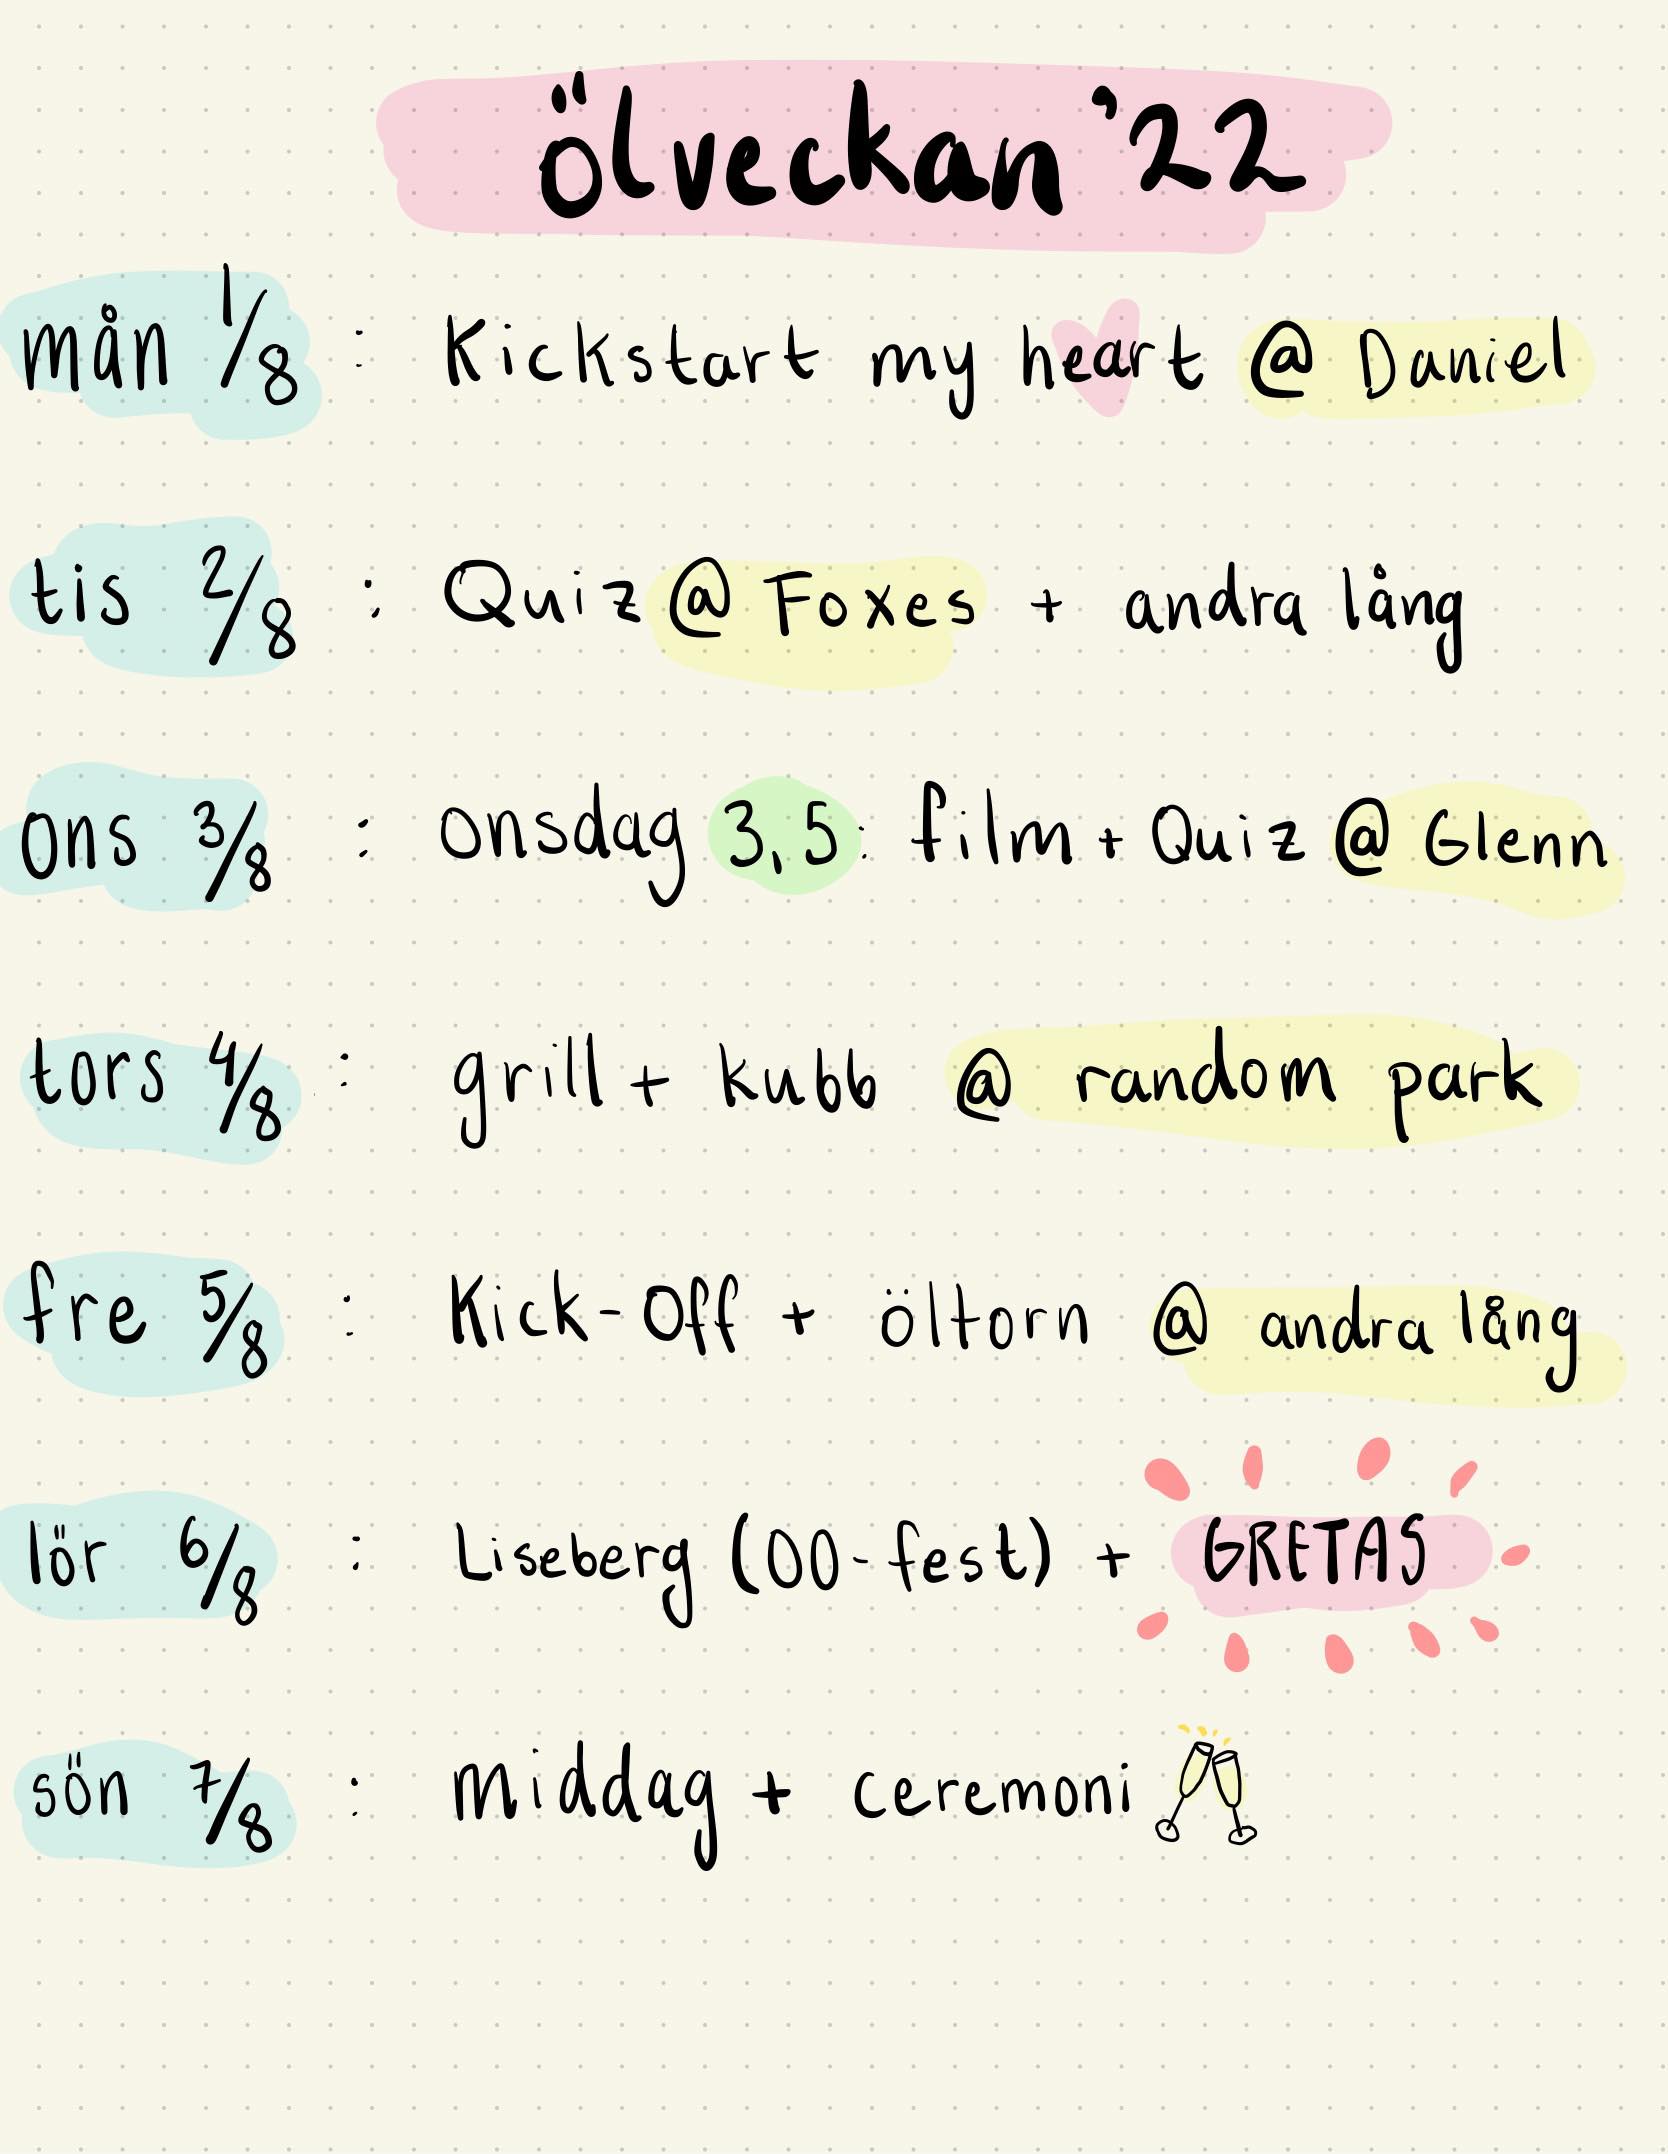 ölveckan '22
mån 1/8 : Kickstart my heart @ Daniel
tis 2/8 : Quiz @ Foxes + andra lång
ons 3/8 : onsdag 3,5: film + Quiz @ Glenn
tors 4/8 : grill + kubb @ random park
fre 5/8 : Kick-Off + öltorn @ andra lång
lör 6/8 : Liseberg (00-fest) + GRETAS
sön 7/8 : middag + ceremoni